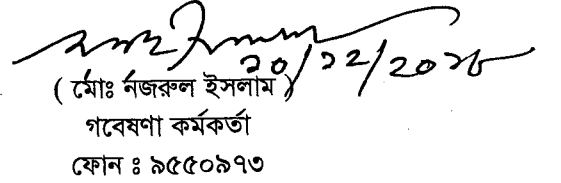 ২০/১২/২০১৮
( মোঃ নজরুল ইসলাম )
গবেষণা কর্মকর্তা
ফোন ঃ ৯৫৫০৯৭৩